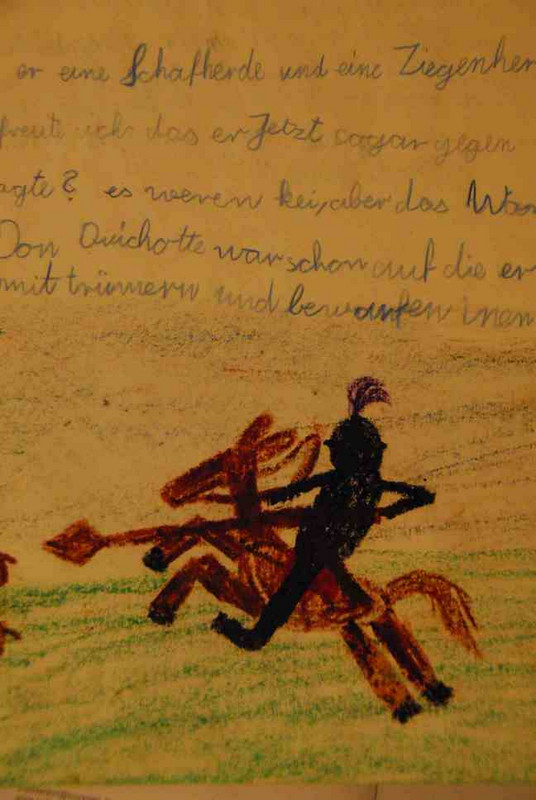 er eine Schafherde und eine Ziegenher
freute ich das er Jetzt sogar gegen
agte? es weren kei, aber das Wa
Don Quichotte war schon auf die er
mit trümern und bewarfen inen